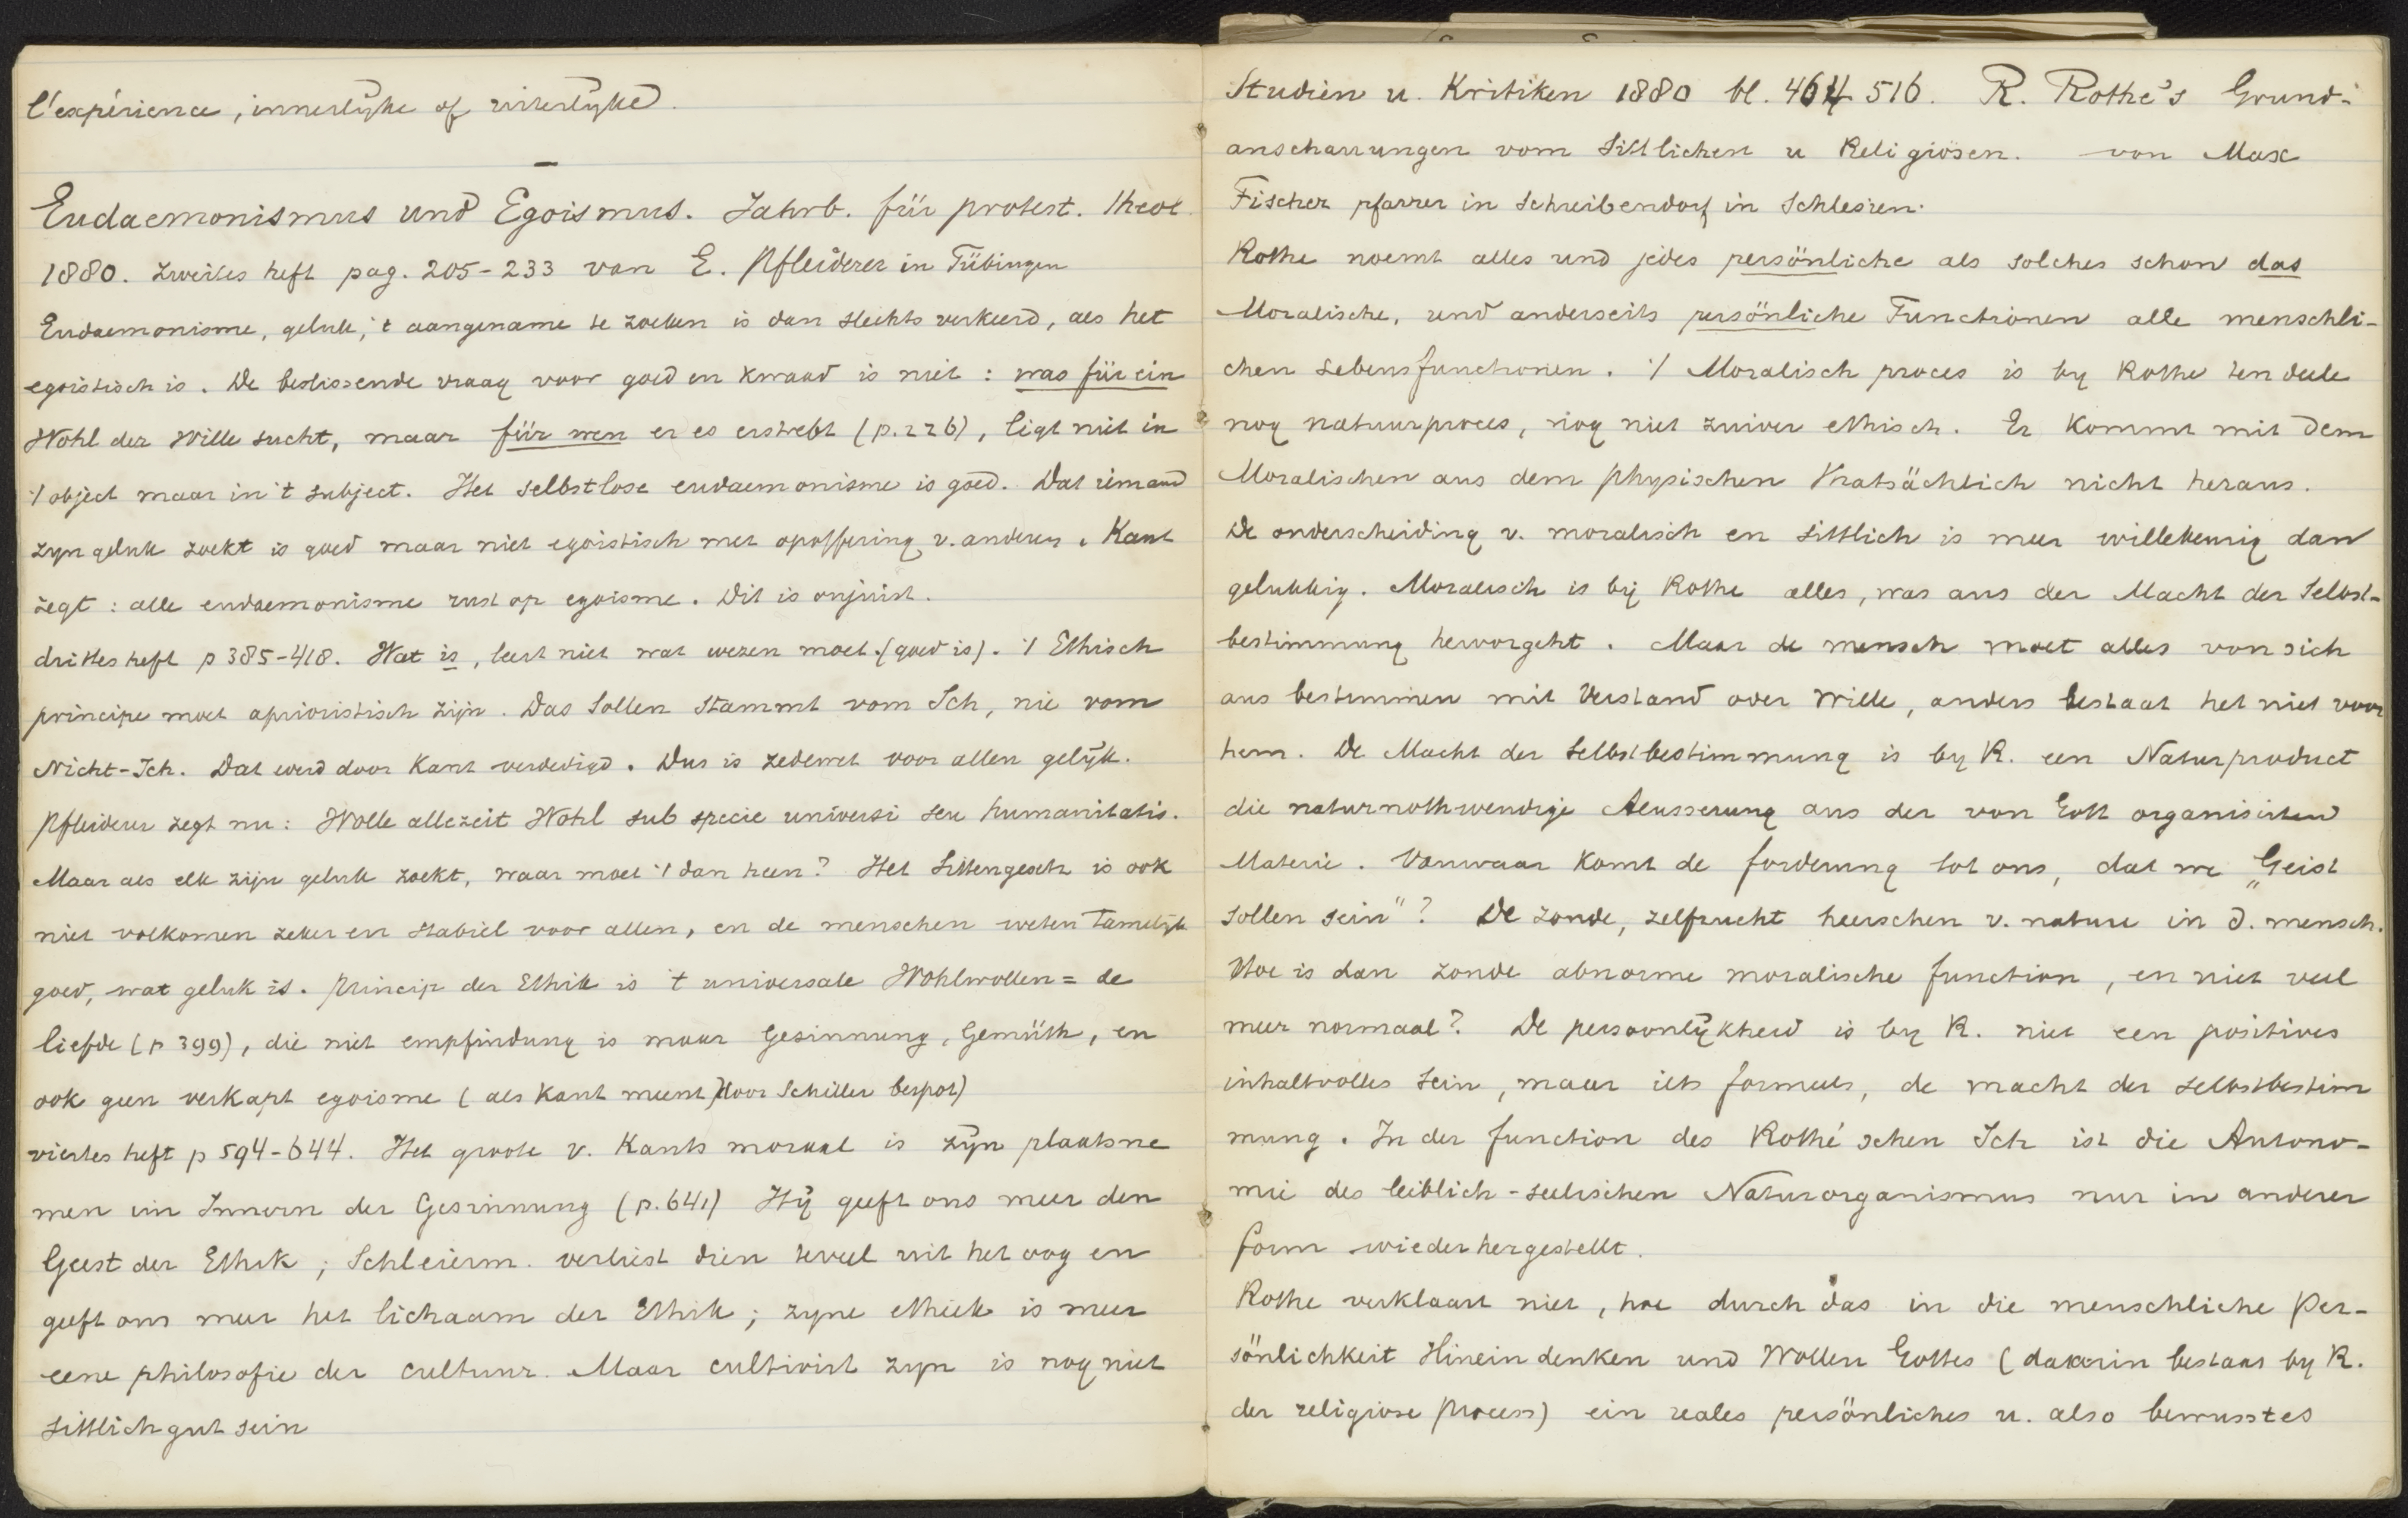 l'expérience, innerlyke of uiterlyke.
Eudaemonismus und Egoismus. Jahrb. für protest. Theol.
1880. zweites heft pag. 205-233 van E. Pfleiderer in Tübingen
Eudaemonisme, geluk, 't aangename te zoeken is dan slechts verkeerd, als het
egoistisch is. De beslissende vraag voor goed en kwaad is niet: was für ein
Wohl der Wille sucht, maar für wen er es erstrebt (p.226), ligt niet in
't object maar in 't subject. Het selbstlose eudaemonisme is goed. Dat iemand
zyn geluk zoekt is goed maar niet egoistisch met opoffering v. anderen. Kant
zegt: alle eudaemonisme rust op egoisme. Dit is onjuist.
drittes heft p 385-418. Wat is, leert niet wat wezen moet. (goed is). 't Ethisch
principe moet aprioristisch zijn. Das Sollen stammt vom Ich, nie vom
Nicht-Ich. Dat werd door Kant verdedigd. Dus is zedewet voor allen gelyk.
Pfleiderer zegt nu: Wolle allezeit Wohl sub specie universi seu humanitatis.
Maar als elk zijn geluk zoekt, waar moet 't dan heen? Het Sittengesetz is ook
niet volkomen zeker en stabiel voor allen, en de menschen weten tamelyk
goed, wat geluk is. Princip der Ethik is 't universale Wohlwollen = de
liefde (p 399), die niet empfindung is maar Gesinnung, Gemüth, en
ook geen verkapt egoisme (als Kant meent) door Schiller bespot)
viertes heft p 594-644. Het groote v. Kants moraal is zyn plaatsne
men im Innern der Gesinnung (p.641) Hy geeft ons meer den
Geest der Ethik; Schleierm. verliest dien teveel uit het oog en
geeft ons meer het lichaam der Ethik; zyne ethiek is meer
eene philosofie der cultuur. Maar cultivirt zyn is nog niet
sittlich gut sein
Studien u. Kritiken 1880 bl. 464 516. R. Rothe's Grund-
anschauungen vom Sittlichen u Religiösen. von Max
Fischer pfarrer in Schreibendorf in Schlesien.
Rothe noemt alles und jedes persönliche als solches schon das
Moralische, und anderseits persönliche Functionen alle menschli-
chen Lebensfunctionen. 't Moralisch proces is by Rothe ten deele
nog natuurproces, nog niet zuiver ethisch. Er kommt mit dem
Moralischen aus dem physischen thatsächlich nicht heraus.
De onderscheiding v. moralisch en sittlich is meer willekeurig dan
gelukkig. Moralisch is bij Rothe alles, was aus der Macht der Selbst-
bestimmung hervorgeht. Maar de mensch moet alles von sich
aus bestimmen mit Verstand oder Wille, anders bestaat het niet voor
hem. De Macht der Selbstbestimmung is by R. een Naturproduct
die naturnothwendige Aeusserung aus der von Gott organisirten
Materie. Vanwaar komt de forderung tot ons, dat we „Geist
sollen sein"? De zonde, zelfzucht heerschen v. nature in d. mensch.
Hoe is dan zonde abnorme moralische function, en niet veel
meer normaal? De persoonlykheid is by R. niet een positives
inhaltvolles Sein, maar iets formeels, de macht der selbstbestim
mung. In der function des Rothé'schen Ich ist die Autono-
mie des leiblich-seelischen Naturorganismus nur in anderer
form wiederhergestellt.
Rothe verklaart niet, hoe durch das in die menschliche Per-
sönlichkeit Hineindenken und Wollen Gottes (daarin bestaat by R.
der religiose Process) ein reales persönliches u. also bewusstes